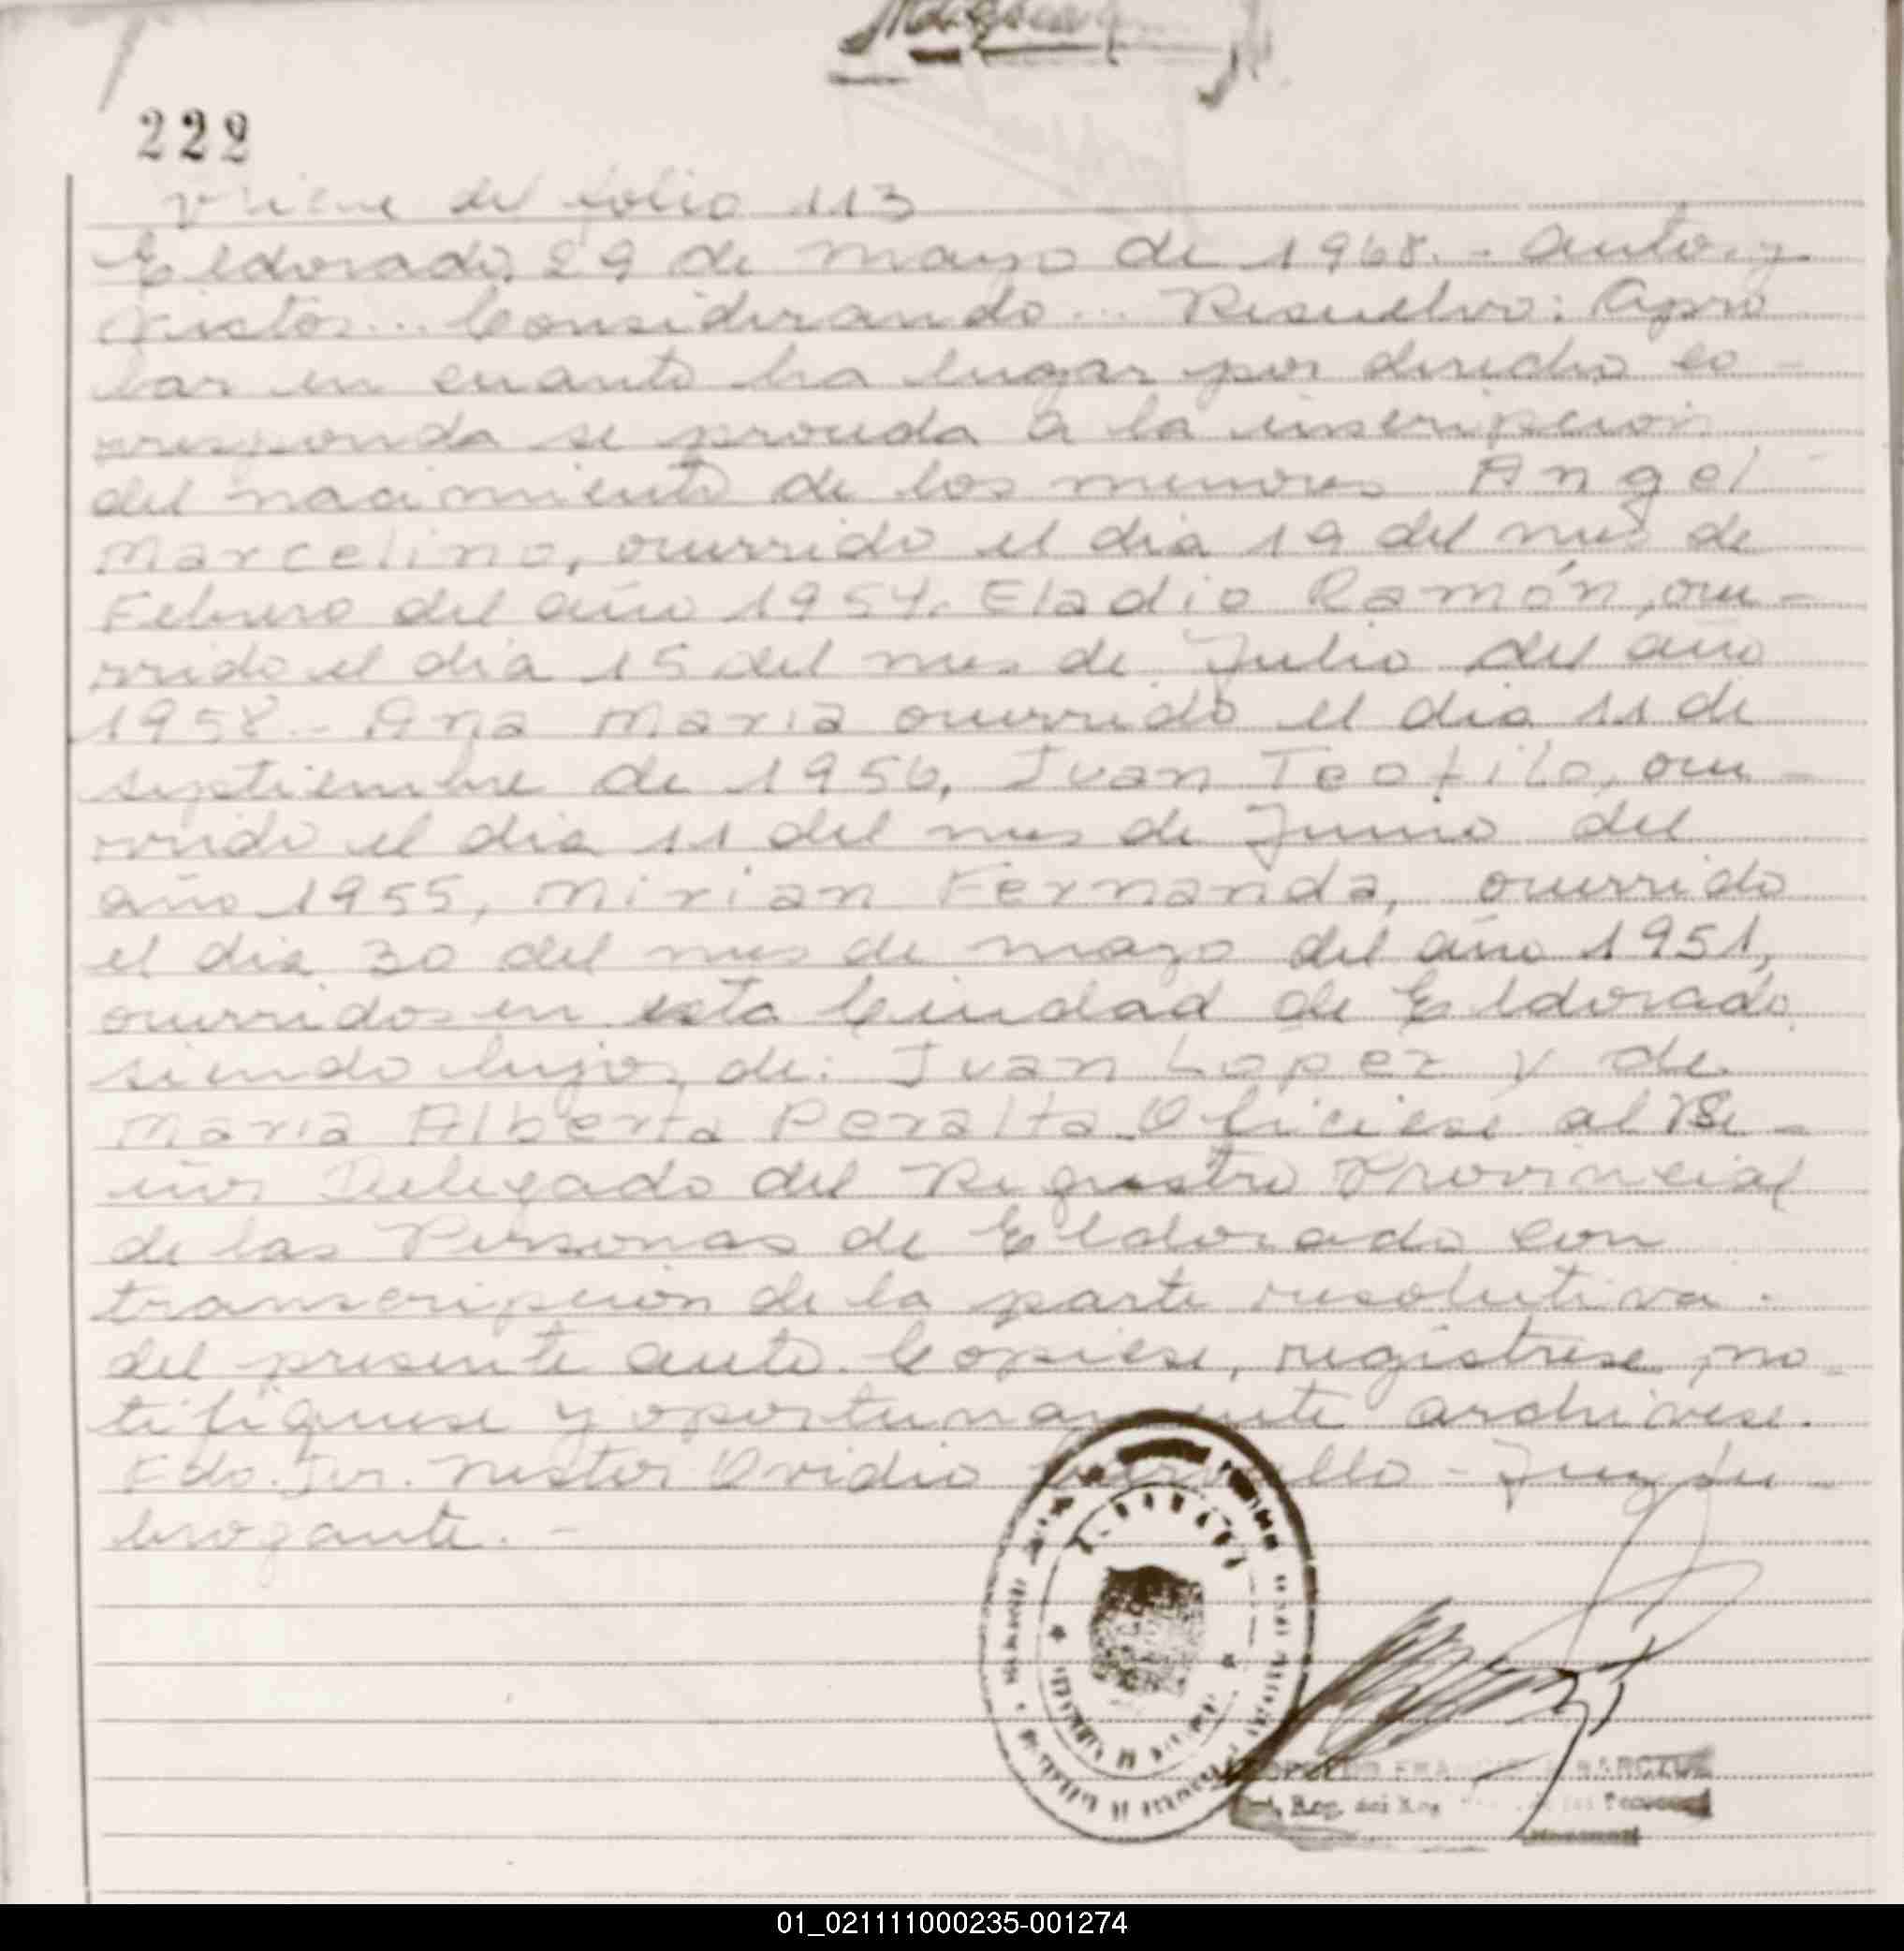 222
Viene del folio 113
Eldorado, 29 de mayo de 1968.- Autos y
Vistos... Considerando... Resuelvo: Apro
bar en cuanto ha lugar por derecho co-
rresponda se proceda a la inscripción
del nacimiento de los menores Angel
Marcelino, ocurrido el dia 19 del mes de
Febrero del año 1954. Eladio Ramón, ocu-
rrido el dia 15 del mes de Julio del año
1958.- Ana Maria ocurrido el dia 11 de
septiembre de 1956, Juan Teofilo, ocu-
rrido el dia 11 del mes de Junio del
año 1955, Mirian Fernanda, ocurrido
el dia 30 del mes de mayo del año 1951,
ocurridos en esta Ciudad de Eldorado,
siendo hijos de: Juan Lopez y de
Maria Alberta Peralta. Oficiese al Se-
ñor Delegado del Registro Provincial
de las Personas de Eldorado con
transcripción de la parte resolutiva
del presente auto. Copiese, registrese, no-
tifiquese y oportunamente archivese.
Fdo. Dr. Nestor Ovidio - Juez Su-
brogante.-
01_021111000235-001274